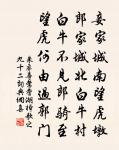 妾家城南望虎墩
郎家城北白牛村
白牛不見郎騎至
望虎何由過郭門
朱彝尊鴛鴦湖棹歌之
九十二 詞典網書